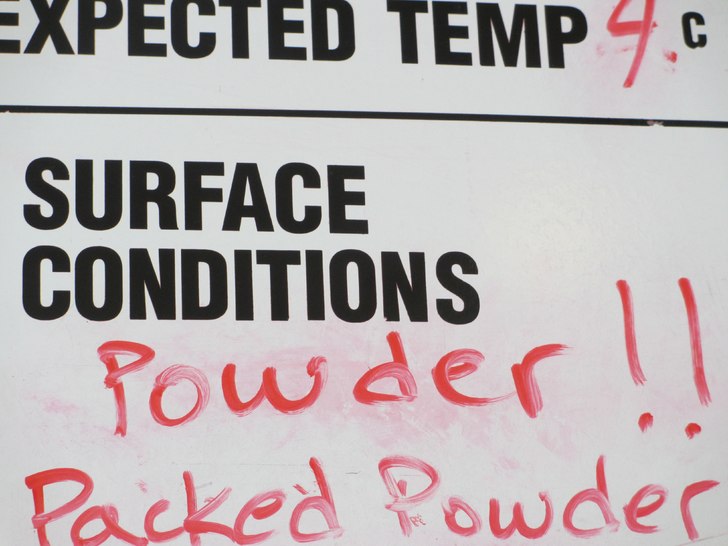 EXPECTED TEMP 4. C
SURFACE
CONDITIONS
Powder!!
Packed Powder